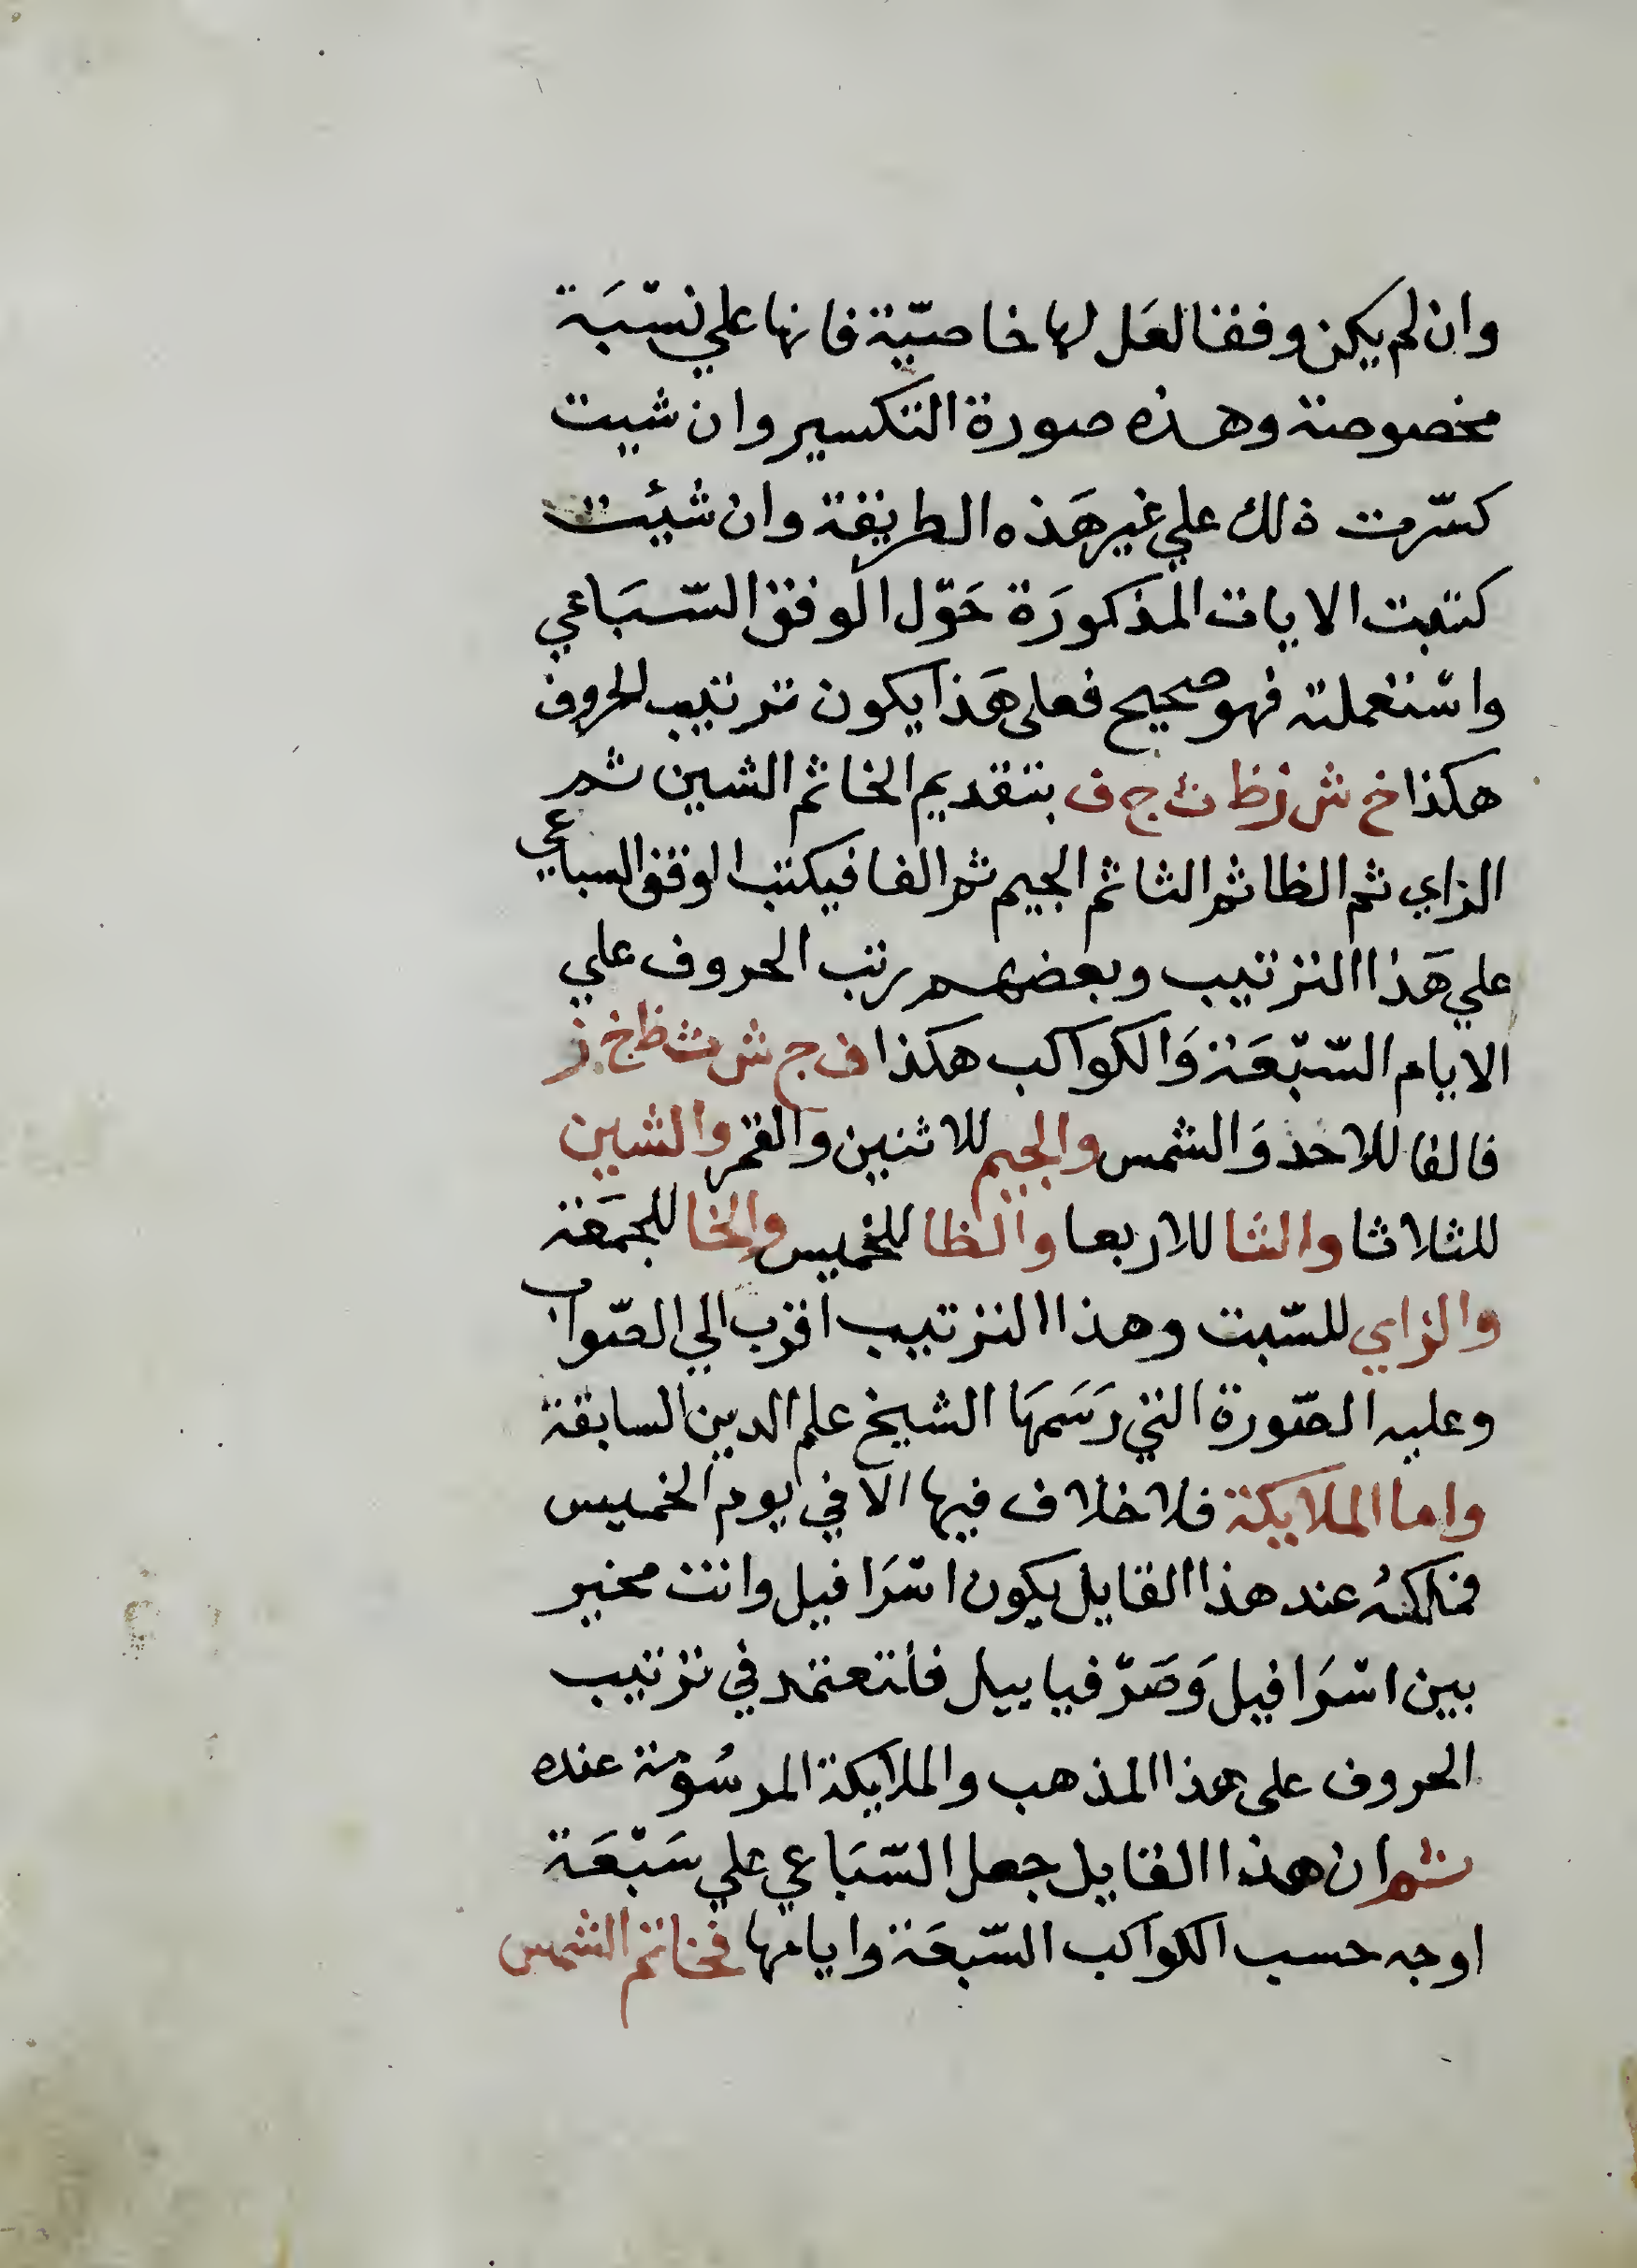 وان لم يكن وفقا لعل لها خاصيّة فانها علي نسْبَة
مخصوصة وهذه صورة التكسير وان شيت
كسّرت ذلك علي غير هَذه الطريقة وان شئت
كتبت الايات المذكورَة حَوْل الوفق السّبَاعي
واسْتعملته فهو صحيح فعلى هَذا يكون ترتيب الحروف
هكذا خ ش ز ظ ث ج ف بتقديم الخا ثم الشين ثم
الزاي ثم الظا ثم الثا ثم الجيم ثم الفا فيكتب الوفق السباعي
علي هَذا الترتيب وبعضهم رتب الحروف علي
الايام السّبْعَة وَالكواكب هكذا ف ج ش ث ظ خ ز
فالفا للاحد وَالشمس والجيم للاثنين والقمر والشين
للثلاثا والثا للاربعا والظا للخميس والخا للجمَعة
والزاي للسّبت وهذا الترتيب اقرب الي الصّواب
وعليه الصّورة التي رَسَمهَا الشيخ علم الدين السابقة
واما الملايكة فلا خلاف فيها الا في يوم الخميس
فملكهُ عند هذا القايل يكون اسْرَافيل وانت مخير
بين اسْرَافيل وَصَرْفياييل فلتعتمد في ترتيب
الحروف على هذا المذهب والملايكة المرسُومة عنده
ثم ان هذا القايل جعل السّبَاعي علي سَبْعَة
اوجه حسب الكواكب السّبعَة وايامها فخاتم الشمس